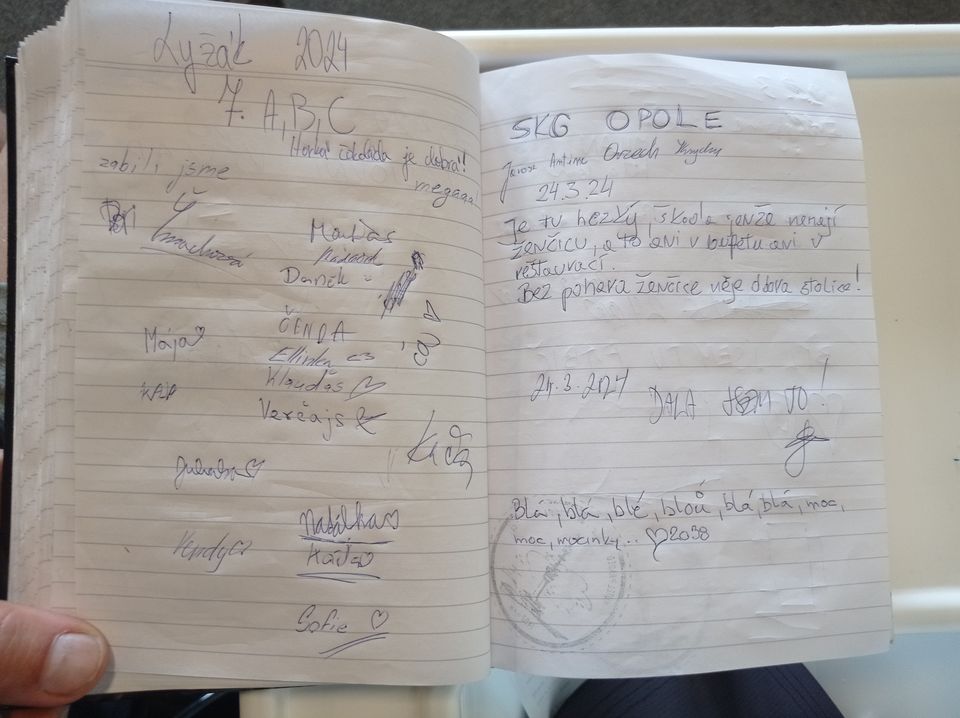 Lyžák 2024
7. A, B, C
Horká čokoláda je dobrá!
megaaa!
zabili jsme
Matías
Daněk
ČENDA
Mája
Ellinka
Klouďás
Verčajs
Káďa
Natálka
Vendy
Káďa
Sofie
SKG OPOLE
Jarosz Antoni Orzech
24.3.24
Je tu hezký škoda jenže nemají
ženčicu, a to ani v bufetu ani v
reštauraci.
Bez pohára ženčice něje dobra stolice!
24.3.2024 DALA JSEM TO!
Blá, blá, blé, bloů, blá, blá, moc,
moc, mocinky... 2038